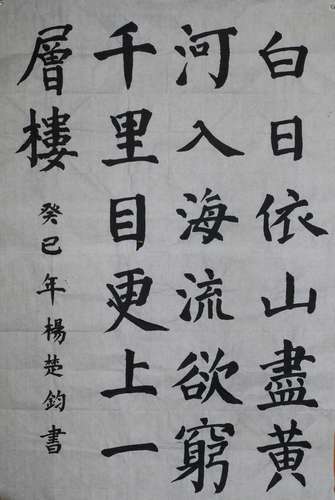 白日依山盡黃
河入海流欲窮
千里目更上一
層樓
癸巳年楊楚鈞書